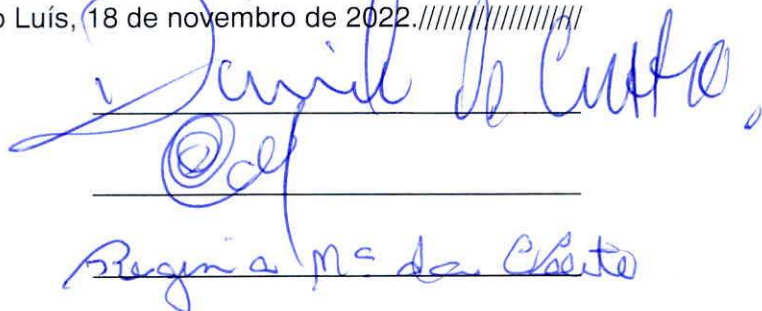 o Luís, 18 de novembro de 2022.///////////////////
de Castro
Regina Mª da Costa